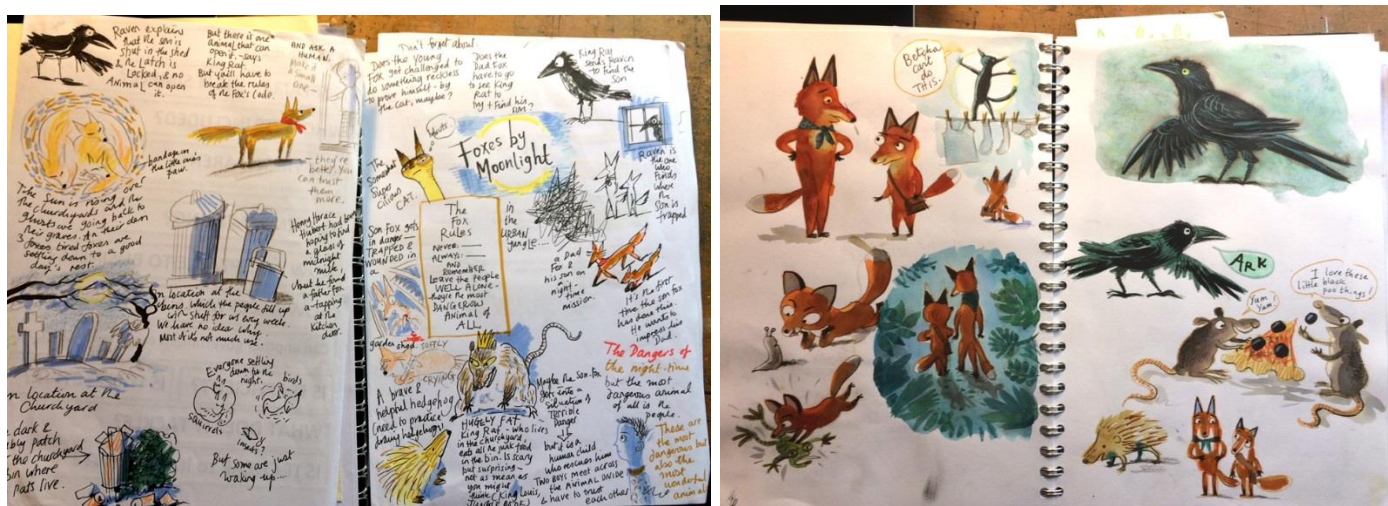 Raven explains
that the son is
shut in the shed
& the Latch is
Locked, & no
Animal can open
it.
But there is one
animal that can
open it, - says
King Rat
But you'll have to
break the rules
of the Fox's Code.
AND ASK A
HUMAN.
a small
one -
they're
better. You
can trust
them
more.
bandage on
the little one's
paw.
The sun is rising over
the churchyard and the
ghosts are going back to
their graves. In their den
3 foxes tired foxes are
settling down to a good
day's rest.
Henry Horace
Hubert had been
hoping to find
a glass of
midnight
milk.
when he found
a father fox
a-tapping
at the
kitchen
door.
n location at the
bins. which the people fill up
with stuff for us every week.
We have no idea why.
Most of it's not much use.
n location at the
Churchyard
Everyone settling
down for the
night.
birds
squirrels
insects?
But some are just
waking up...
dark &
patch
the churchyard
bin where
rats live.
Don't forget about.
Does the Young
Fox get challenged to
do something reckless
to prove himself - by
the cat, maybe?
Does the
Dad Fox
have to go
to see King
Rat to
try & find his
son?
King Rat
sends Raven
to find the
son
Foxes by
Moonlight
The
somewhat
Super
Cilious
CAT.
Raven is
the one
who
finds
where
the
Son is
trapped
The
Fox
Rules
Never:
ALWAYS:
AND
REMEMBER
LEAVE THE PEOPLE
WELL ALONE -
they're the most
DANGEROUS
Animal of
ALL
in
the
URBAN
Jungle...
Son Fox gets
in danger -
TRAPPED &
WOUNDED in
a
garden shed.
SOFTLY
CRYING
a Dad
Fox &
his son on
a
night -
time
mission.
It's the first
time the son fox
has done this.
He wants to
impress his
Dad.
The Dangers of
the night-time
but the most
dangerous animal
of all is the
people.
A brave &
helpful hedgehog
(need to practice
drawing hedgehogs)
HUGELY FAT
King Rat - who lives
in the churchyard
eats all the junk food
in the bin. Is scary
but surprising -
not as mean as
you might
think (King Louis,
Maybe the Son fox
gets into a
situation of
Terrible
Danger
but it is a
human child
who rescues him
Two boys meet across
the ANIMAL DIVIDE
& have to trust
each other
These are
the most
dangerous but
also the
most
wonderful
animal
Betcha
can't
do
THIS.
ARK
Yum
Yum!
I love these
little black
poo things!